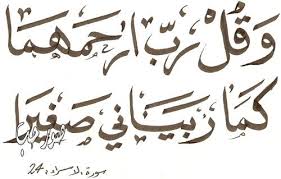 وَقُلْ رَبِّ ارْحَمْهُمَا
كَمَا رَبَّيَانِي صَغِيرًا
سورة الإسراء، 24